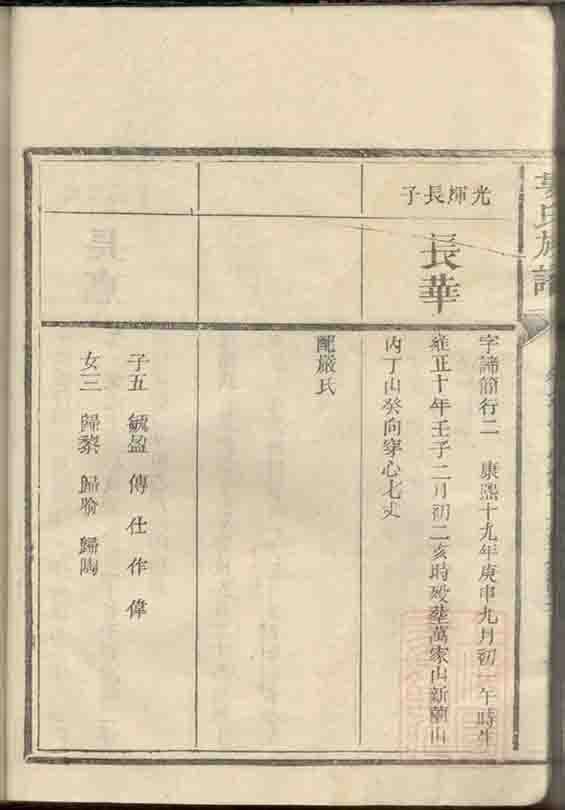 氏族譜
光輝長子
長華
字諦簡行二 康熙十九年庚申九月初一午時生
雍正十年壬子二月初二亥時歿塟萬家山新蘭山
丙丁山癸向穿心七丈
配嚴氏
子五 毓盈 傳 仕 作 偉
女三 歸黎 歸喻 歸陶